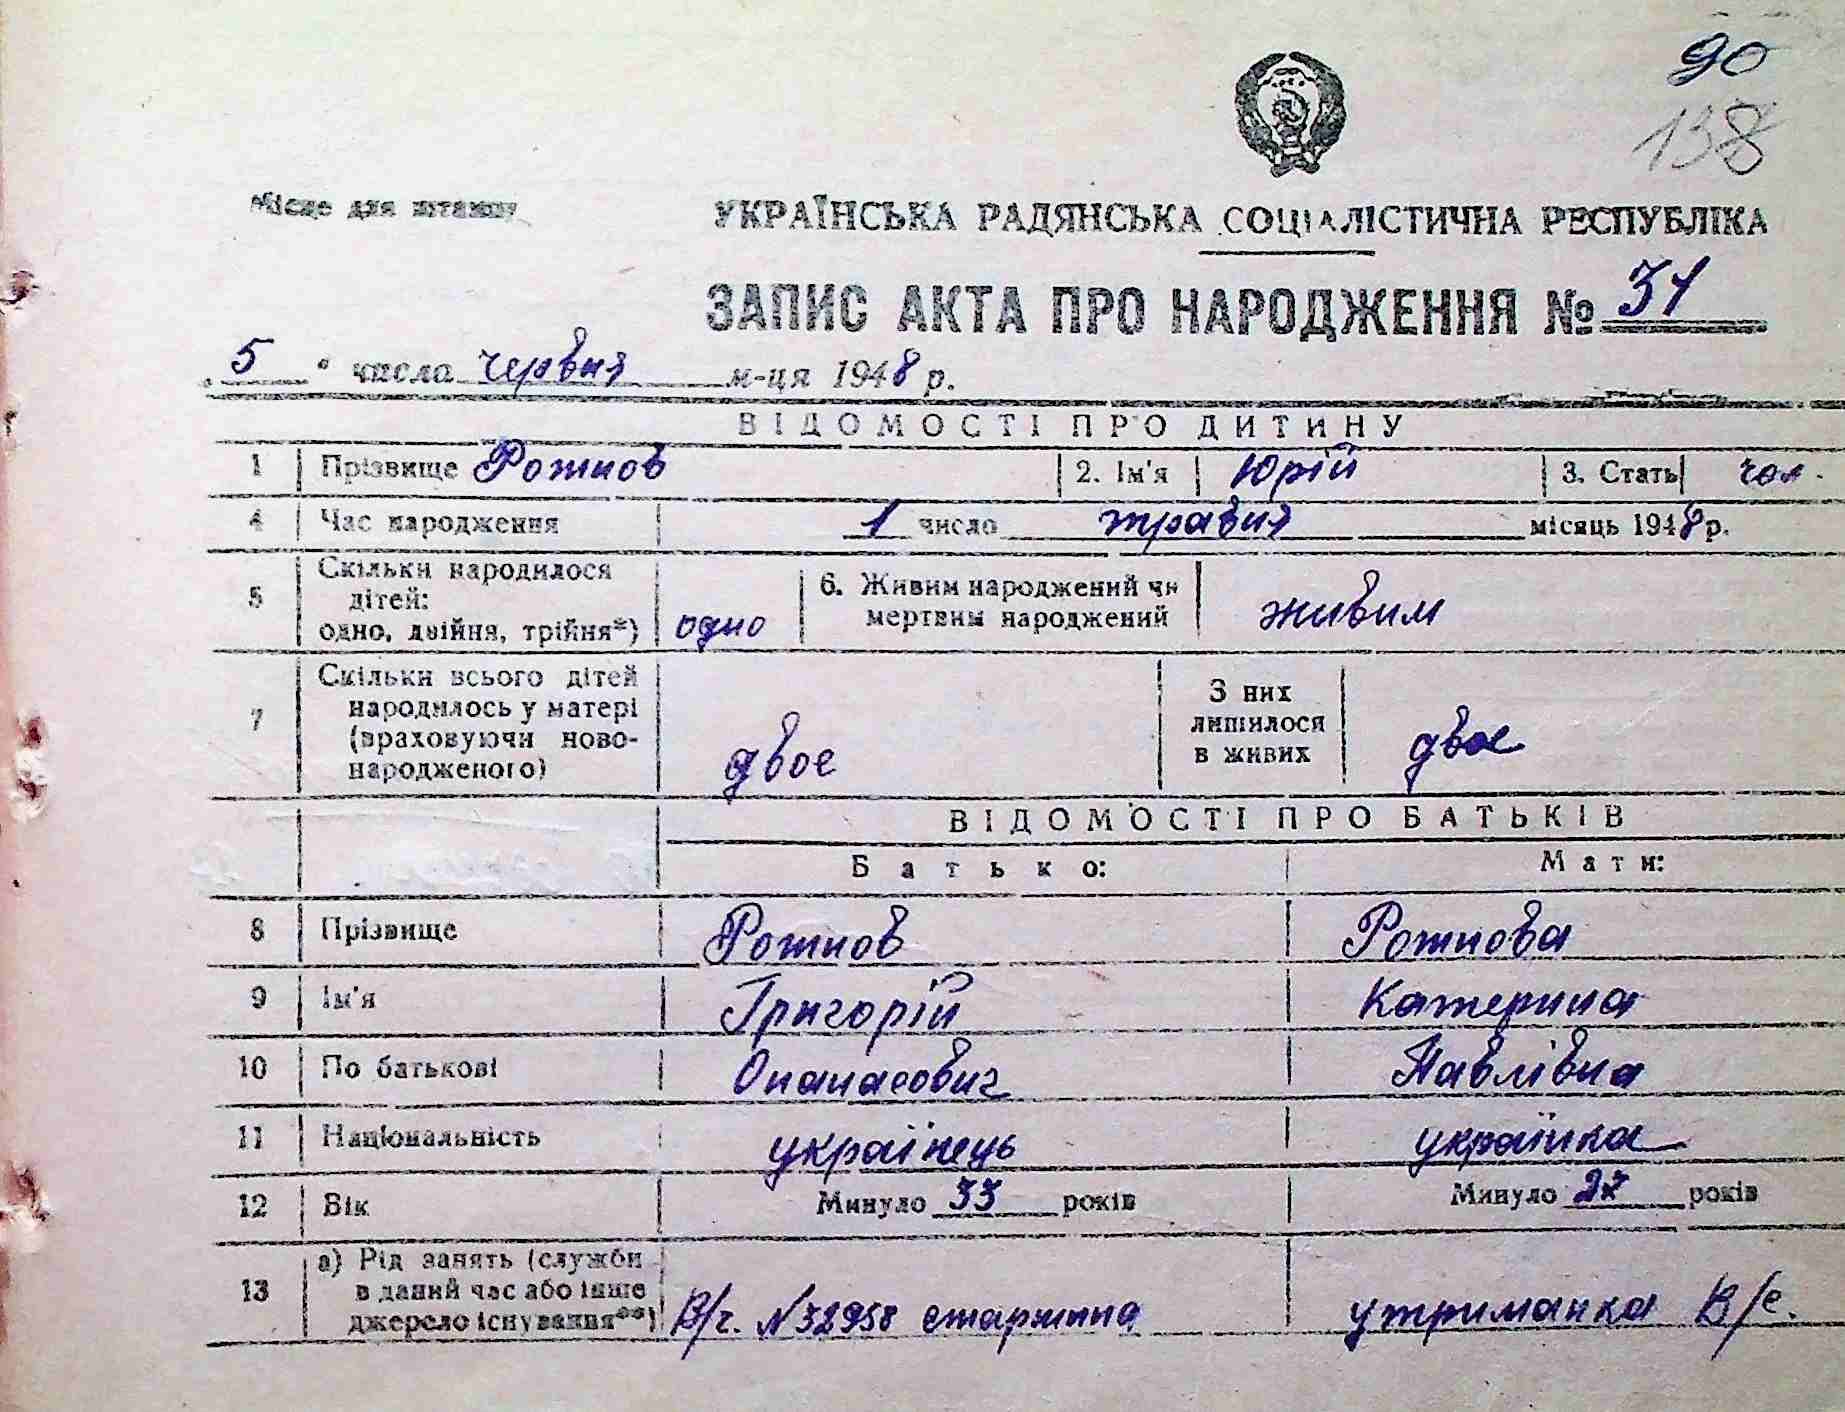 90
138
Місце для штампу
УКРАЇНСЬКА РАДЯНСЬКА СОЦІАЛІСТИЧНА РЕСПУБЛІКА
ЗАПИС АКТА ПРО НАРОДЖЕННЯ № 31
„5“ числа червня м-ця 1948 р.
ВІДОМОСТІ ПРО ДИТИНУ
1 Прізвище Рожнов 2. Ім'я Юрій 3. Стать чол.
4 Час народження 1 число травня місяць 1948 р.
5 Скільки народилося
дітей:
одно, двійня, трійня*) одно
6. Живим народжений чи
мертвим народжений живим
7 Скільки всього дітей
народилось у матері
(враховуючи ново-
народженого) двое
З них
лишилося
в живих двое
ВІДОМОСТІ ПРО БАТЬКІВ
Батько: Мати:
8 Прізвище Рожнов Рожнова
9 Ім'я Григорій Катерина
10 По батькові Опанасович Павлівна
11 Національність українець українка
12 Вік Минуло 33 років Минуло 27 років
13 а) Рід занять (служби
в даний час або інше
джерело існування**) В/ч. N32958 старшина утриманка В/с.